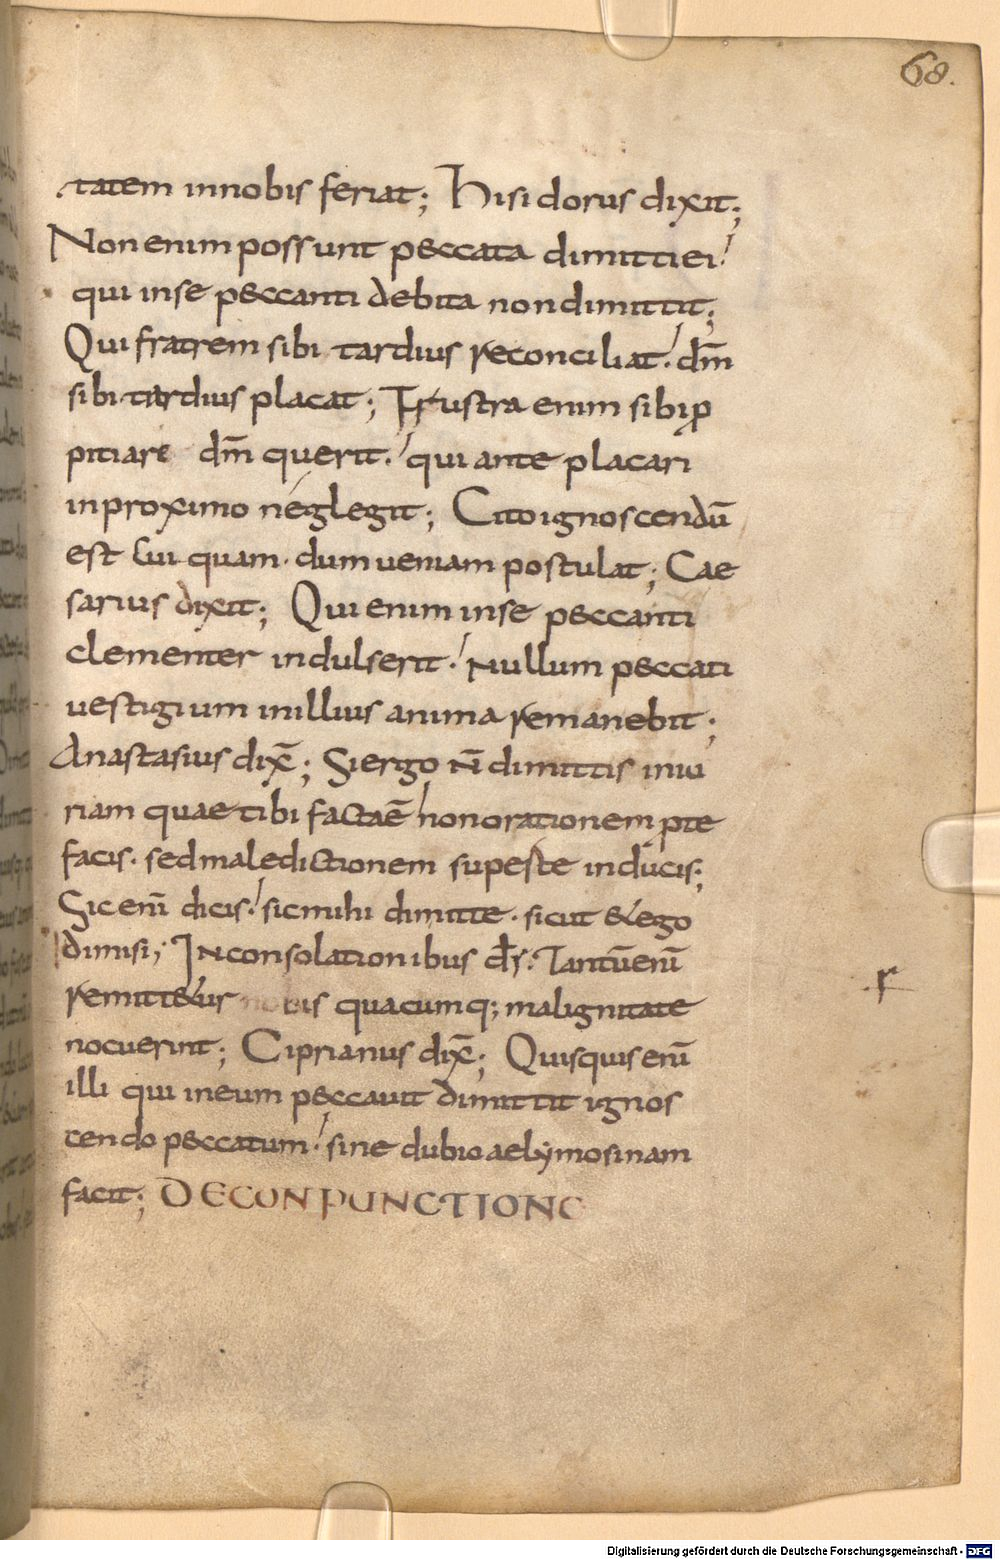 68.
tatem innobis feriat; Hisidorus dixit;
Non enim possunt peccata dimitti ei
qui inse peccanti debita non dimittit;
Qui fratrem sibi tardius reconciliat. dm̄
sibi tardius placat; Frustra enim sibi p̱ro
pitiare dm̄ querit. qui ante placari
in proximo neglegit; Cito ignoscendū
est cuiquam. dum ueniam postulat; Cae
sarius dixit; Qui enim inse peccanti
clementer indulserit. Nullum peccati
uestigium inillius anima remanebit;
Anastasius dix̄; Si ergo n̄ dimittis iniu
riam quae tibi facta ē non orationem p̱ te
facis. sed maledictionem sup̱ te inducis;
Sic enī dicis. sic mihi dimitte. sicut & ego
dimisi; IN consolationibus dr̄. Tantū enī
remitt&ur nobis quacumq; malignitate
nocuerint; Ciprianus dix̄; Quisquis enī
illi qui in eum peccauit dimittit ignos
cendo peccatum. sine dubio aelymosinam
facit; DE CONPUNCTIONE
r
Digitalisierung gefördert durch die Deutsche Forschungsgemeinschaft - DFG